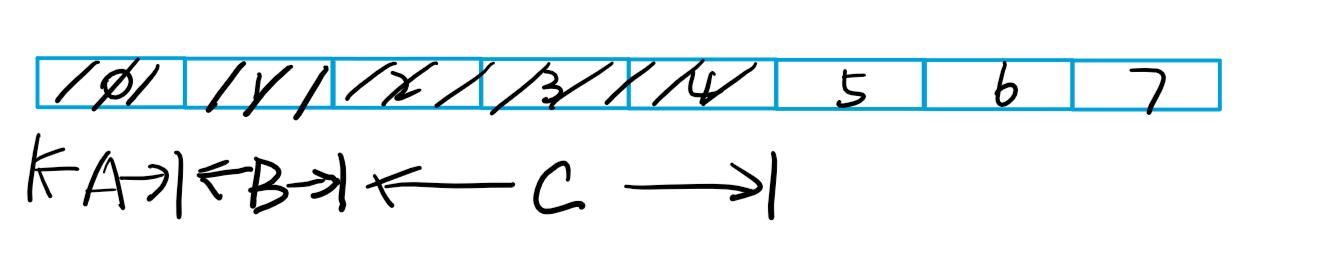 0 1 2 3 4 5 6 7
A B C